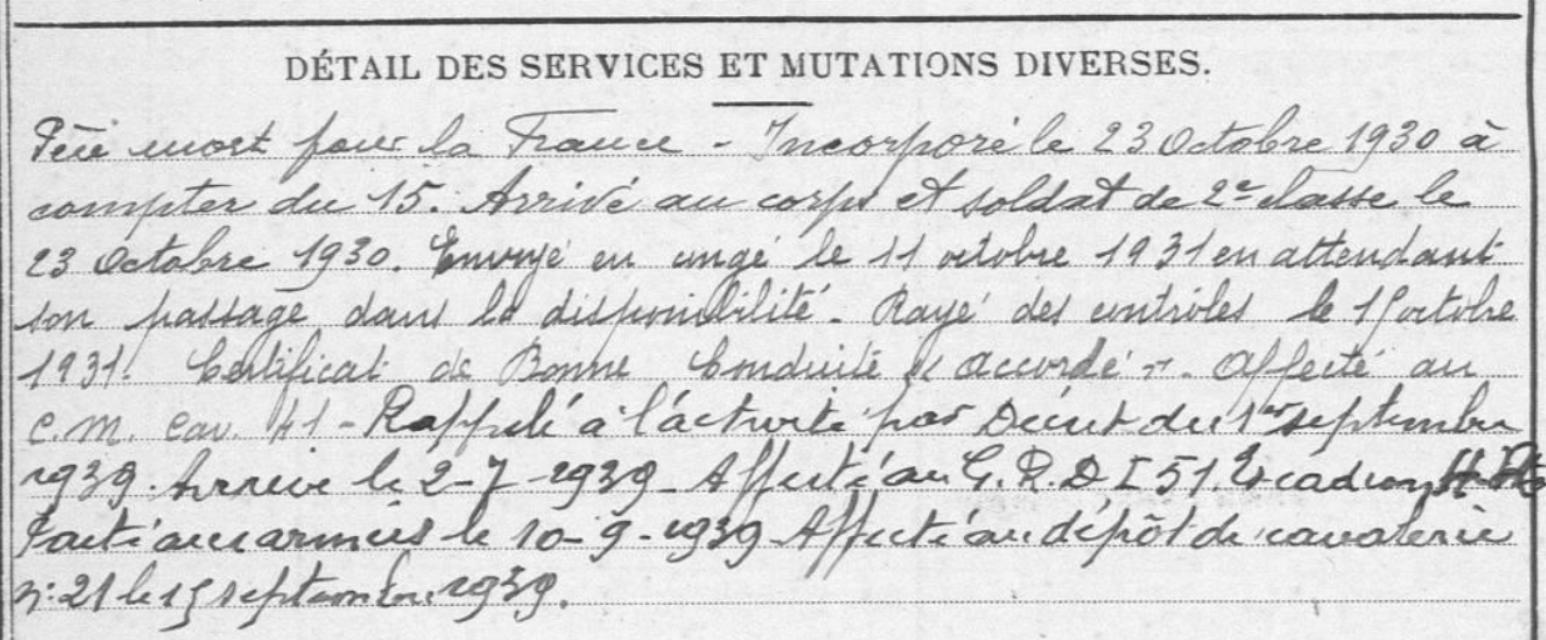 DÉTAIL DES SERVICES ET MUTATIONS DIVERSES.
Père mort pour la France - Incorporé le 23 Octobre 1930 à
compter du 15. Arrivé au corps et soldat de 2e classe le
23 Octobre 1930. Envoyé en congé le 11 octobre 1931 en attendant
son passage dans la disponibilité - Rayé des contrôles le 15 octobre
1931. Certificat de Bonne Conduite « accordé ». Affecté au
C.M. Cav. 41 - Rappelé à l'activité par Décret du 1er septembre
1939. Arrivé le 2-7-1939 - Affecté au G.R.D.I 51 Escadron
Parti aux armées le 10-9-1939 Affecté au dépôt de cavalerie
n° 21 le 15 septembre 1939.